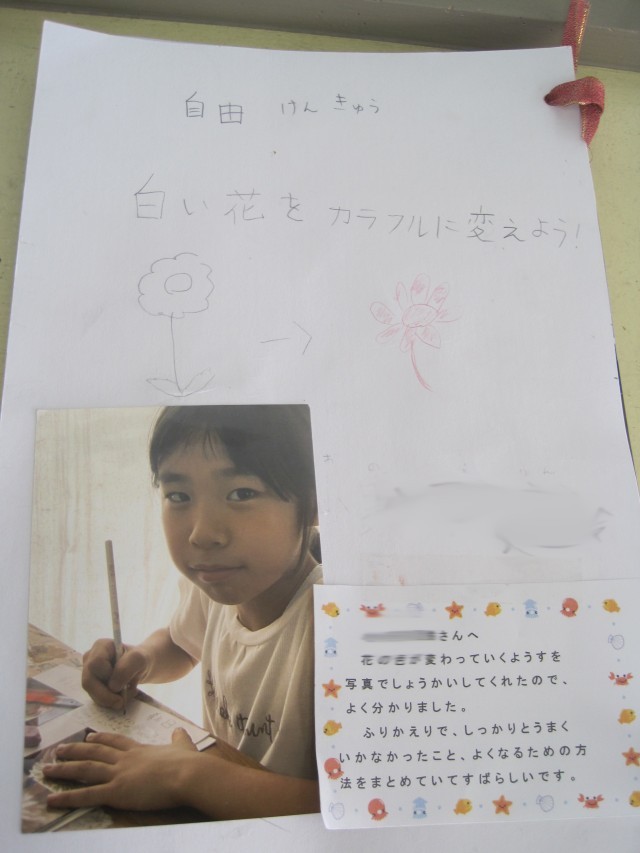 自由 けんきゅう
白い花をカラフルに変えよう!
さんへ
花の色が変わっていくようすを
写真でしょうかいしてくれたので、
よく分かりました。
ふりかえりで、しっかりとうまく
いかなかったこと、よくなるための方
法をまとめていてすばらしいです。